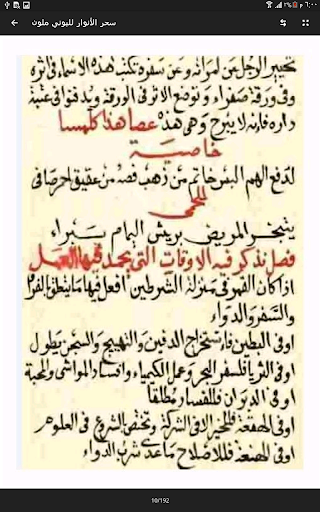 ٦:٠٠
سحر الأنوار للبوني ملون
تخيير الرجل عن امرأته وعن سفره تكتب هذه الاسماء فى اثره
وفى ورقة صفراء وتوضع الاثر فى الورقة ويدفنوا فى عتبة
داره فإنه لا يبرح وهى هذه عصا هذا كلمسا
خاصية
لدفع الهم البس خاتم من ذهب فصه من عقيق احمر صافى
للحمى
يتبخر المريض بريش الهام سبراء
فصل نذكر فيه الاوقات التى يحمد فيها العمل
اذا كان القمر فى منزلة الشرطين افعل فيها ما يتعلق بالفرم
والسفر والدواء
اوفى البطين فاستخراج الدفين والتهييج والسجن يطول
اوفى الثريا فلسفر البحر وعمل الكيمياء وافساد المواشى والمحبة
اوفى الدبران فللفساد مطلقا
اوفى الهقعة فللخير الا فى الشركة وتختص الشروع فى العلوم
اوفى الهنعة فللاصلاح ما عدى شرب الدواء
10/192